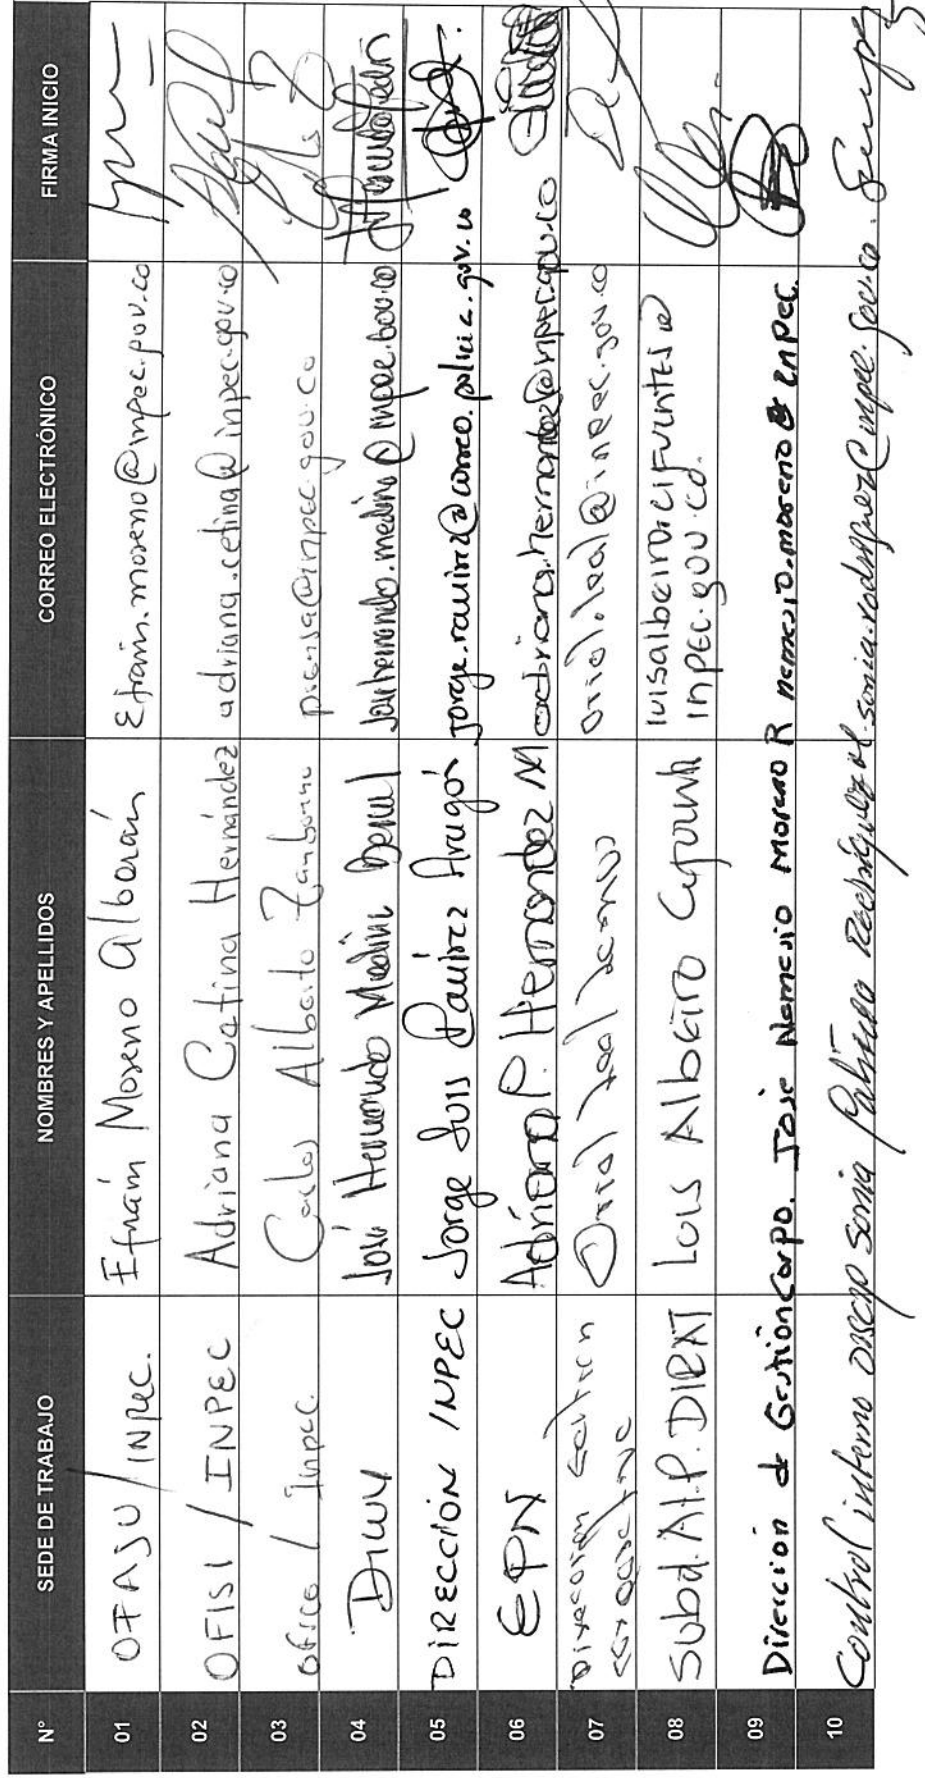 N° SEDE DE TRABAJO NOMBRES Y APELLIDOS CORREO ELECTRÓNICO FIRMA INICIO
01 OFAJU / INPEC. Efraín Moreno Albarán Efrain.moreno@inpec.gov.co
02 OFISI / INPEC Adriana Cetina Hernández adriana.cetina@inpec.gov.co
03 Ofico / Inpec. Carlos Alberto Zambrano prensa@inpec.gov.co
04 José Hernando Medina Bernal josehernando.medina@inpec.gov.co
05 DIRECCIÓN INPEC Jorge Luis Ramírez Aragón jorge.ramirez@correo.policia.gov.co
06 EPN Adriana P. Hernandez M adriana.hernandez@inpec.gov.co
07 Direccion Gestion
Corporativa Oriol Leal oriol.leal@inpec.gov.co
08 Subd.At.P. DIRAT Luis Albeiro Cifuentes luisalbeiro.cifuentes@
inpec.gov.co.
09 Direccion de Gestion Corpo. José Nemesio Moreno R nemesio.moreno@inpec.
10 Control interno Sonia Patricia Rodríguez sonia.rodriguez@inpec.gov.co.